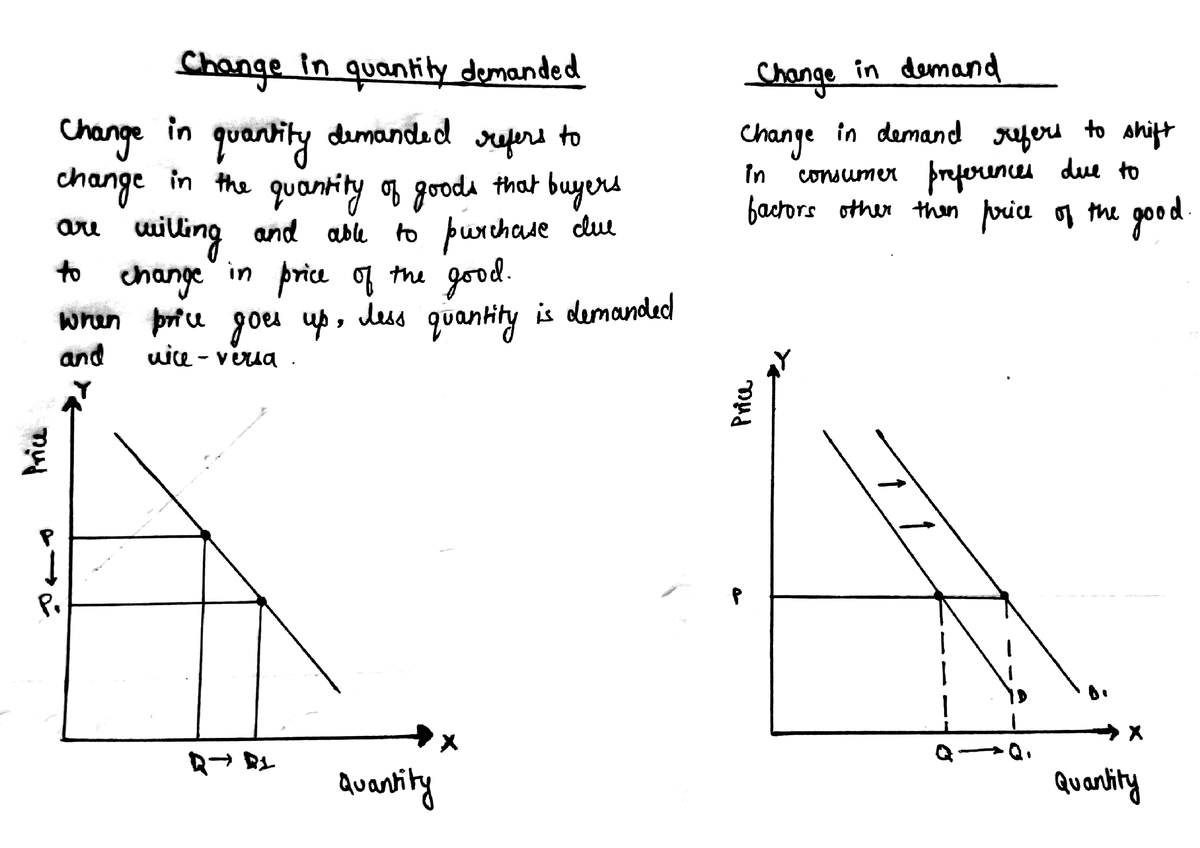 Change in quantity demanded
Change in quantity demanded refers to
change in the quantity of goods that buyers
are willing and able to purchase due
to change in price of the good.
When price goes up, less quantity is demanded
and vice-versa.
Y
Price
P
P1
Q → Q1
X
Quantity
Change in demand
Change in demand refers to shift
in consumer preferences due to
factors other then price of the good.
Y
Price
P
D
D1
Q → Q1
X
Quantity